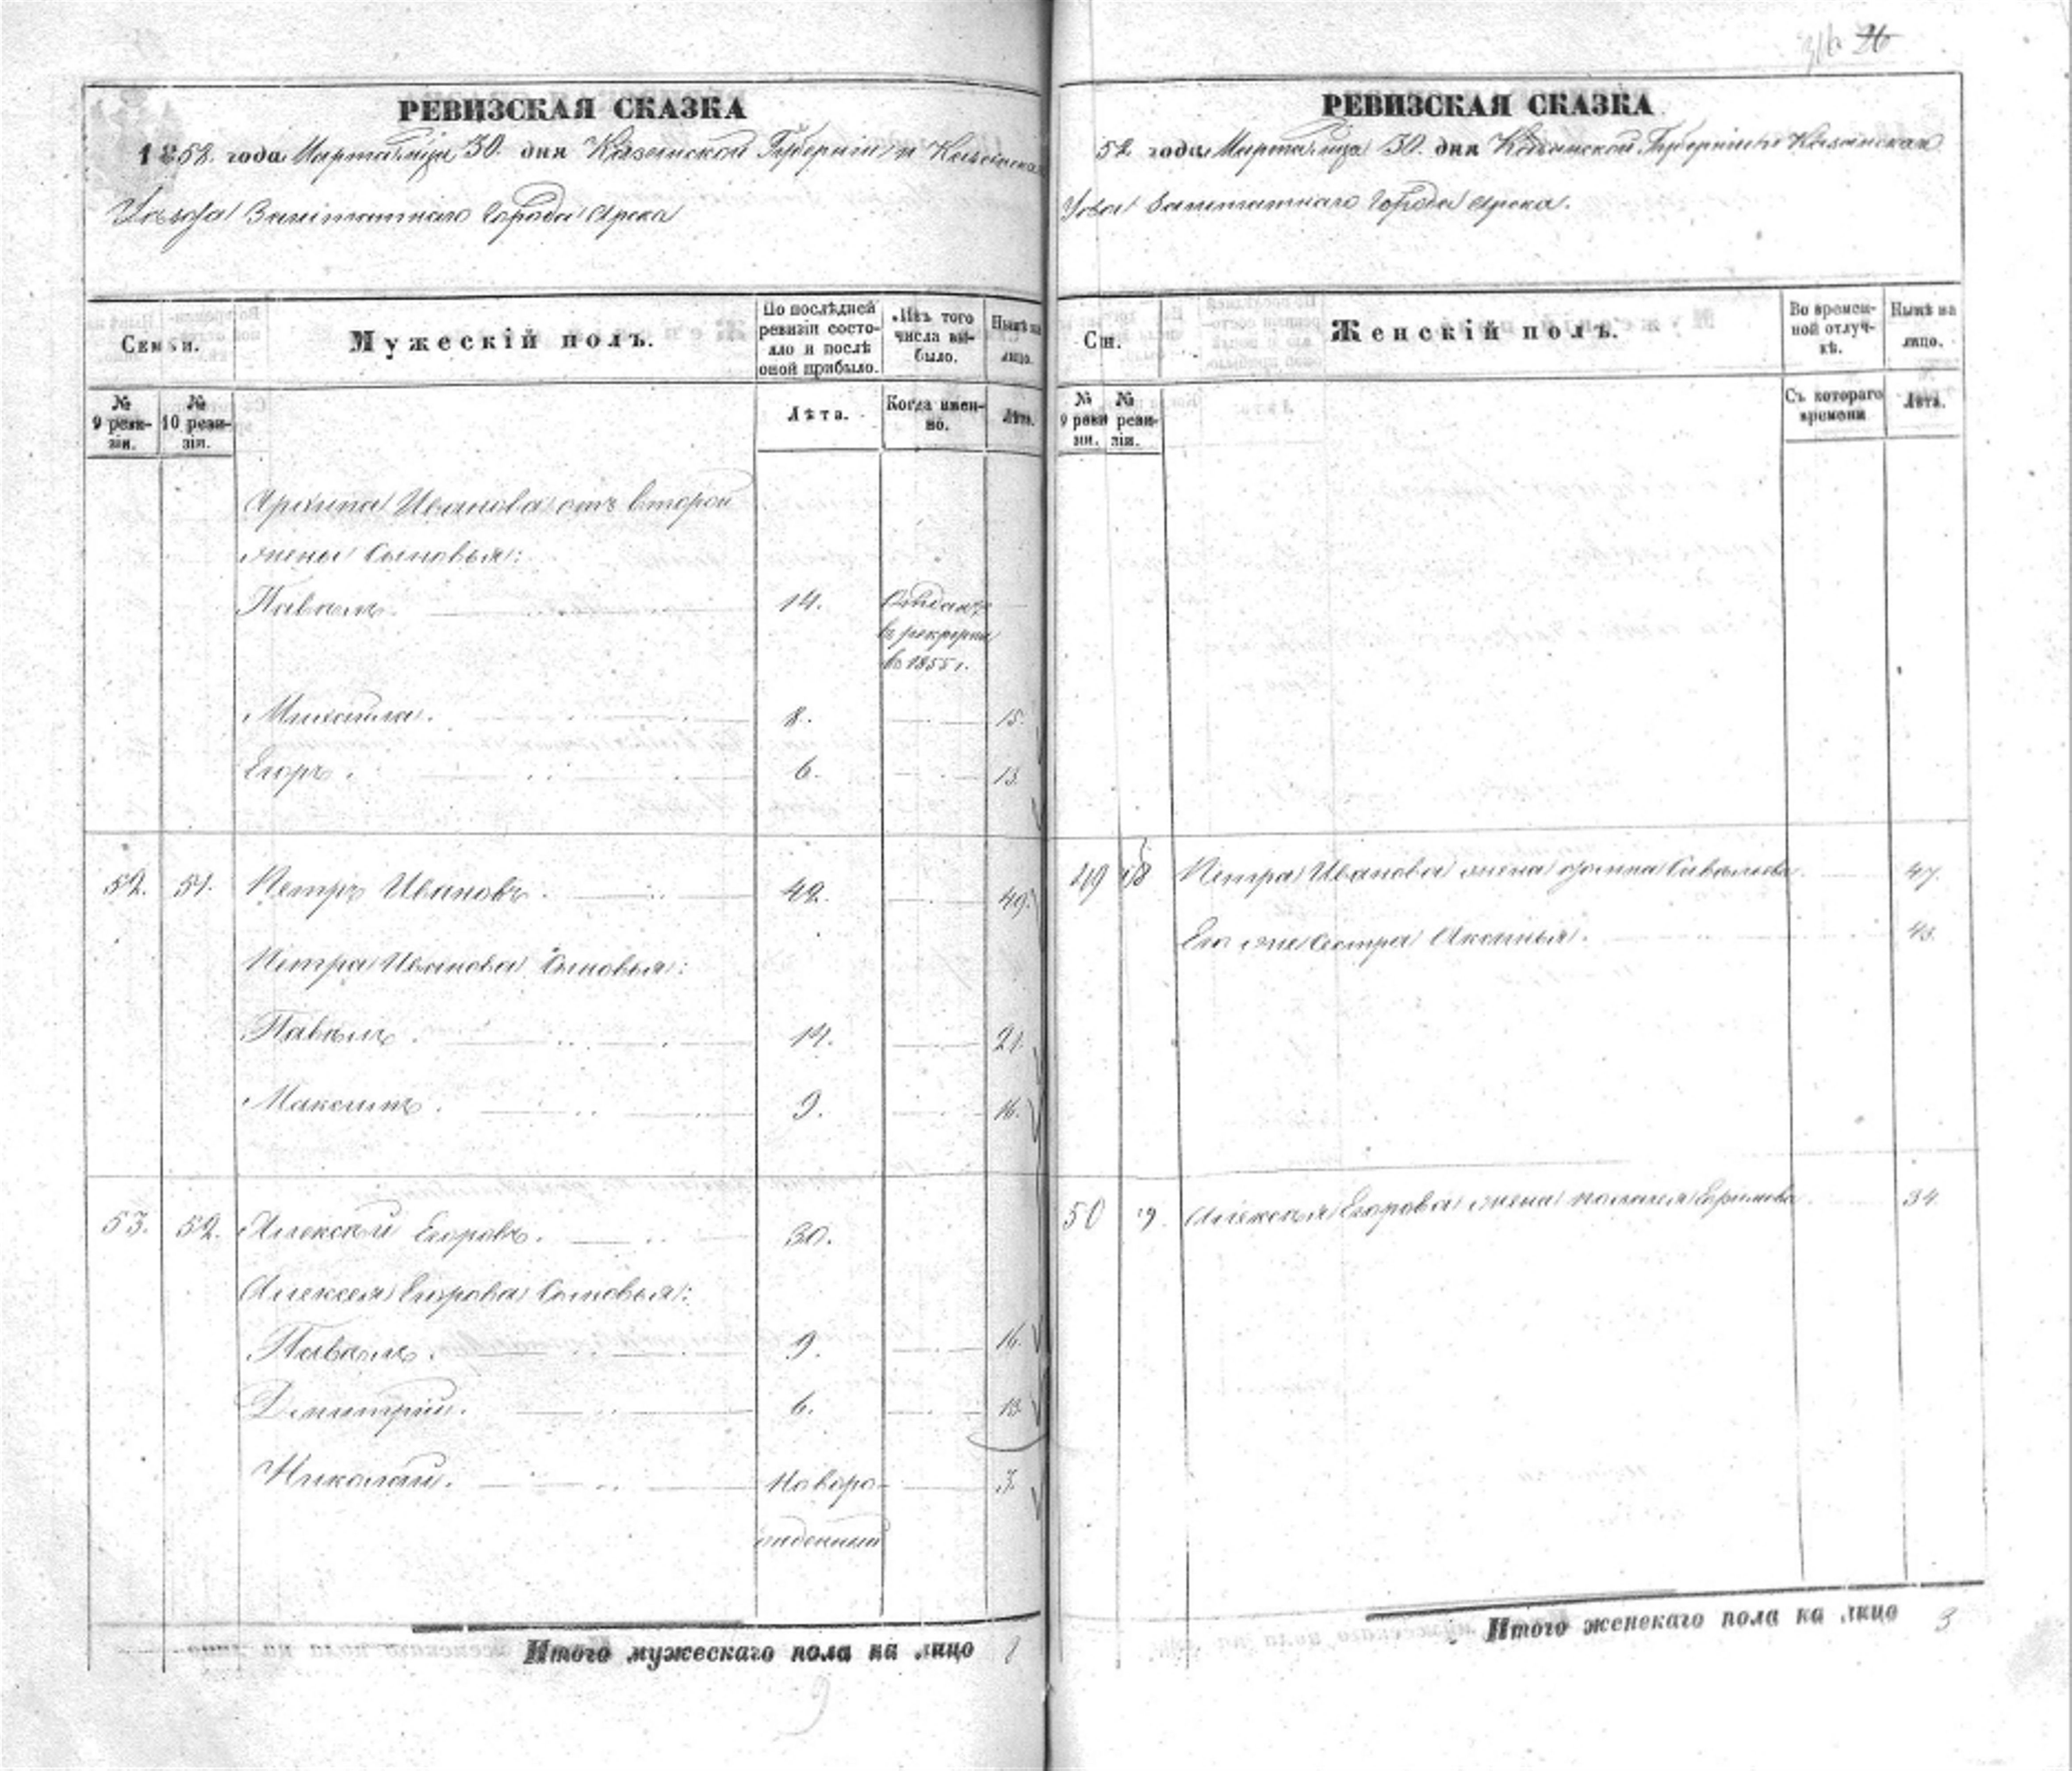 26
РЕВИЗСКАЯ СКАЗКА
1858. года Марта м-ца 30. дня Казанской Губернiи и Казанскаго
Уезда Заштатнаго Города Арска
Семьи.
Мужескiй полъ.
По послѣдней ревизiи состояло и послѣ оной прибыло.
Изъ того числа выбыло.
Нынѣ на лицо.
№ 9 ревизiи.
№ 10 ревизiи.
Лѣта.
Когда именно.
Лѣта.
Архипа Иванова отъ второй
жены Сыновья:
Павелъ. 14. Отданъ
въ рекруты
въ 1855 г.
Михайла. 8. 15.
Егоръ. 6. 13.
52. 51. Петръ Ивановъ. 42. 49.
Петра Иванова Сыновья:
Павелъ. 14. 21.
Максимъ. 9. 16.
53. 52. Алексѣй Егоровъ. 30.
Алексея Егорова Сыновья:
Павелъ. 9. 16.
Дмитрiй. 6. 13.
Николай. Новоро- 3.
жденный
Итого мужескаго пола на лицо
9
РЕВИЗСКАЯ СКАЗКА
58 года Марта м-ца 30. дня Казанской Губернiи и Казанскаго
Уезда Заштатнаго Города Арска.
Женскiй полъ.
Во временной отлучкѣ.
Нынѣ на лицо.
№ 9 реви зи.
№ ревизiи.
Съ котораго времени
Лѣта.
49 Петра Иванова жена Савельева 47.
Его же Сестра Аксинья. 43.
50 Алексѣя Егорова жена Пелагея Ефимова 34.
Итого женскаго пола на лицо 3